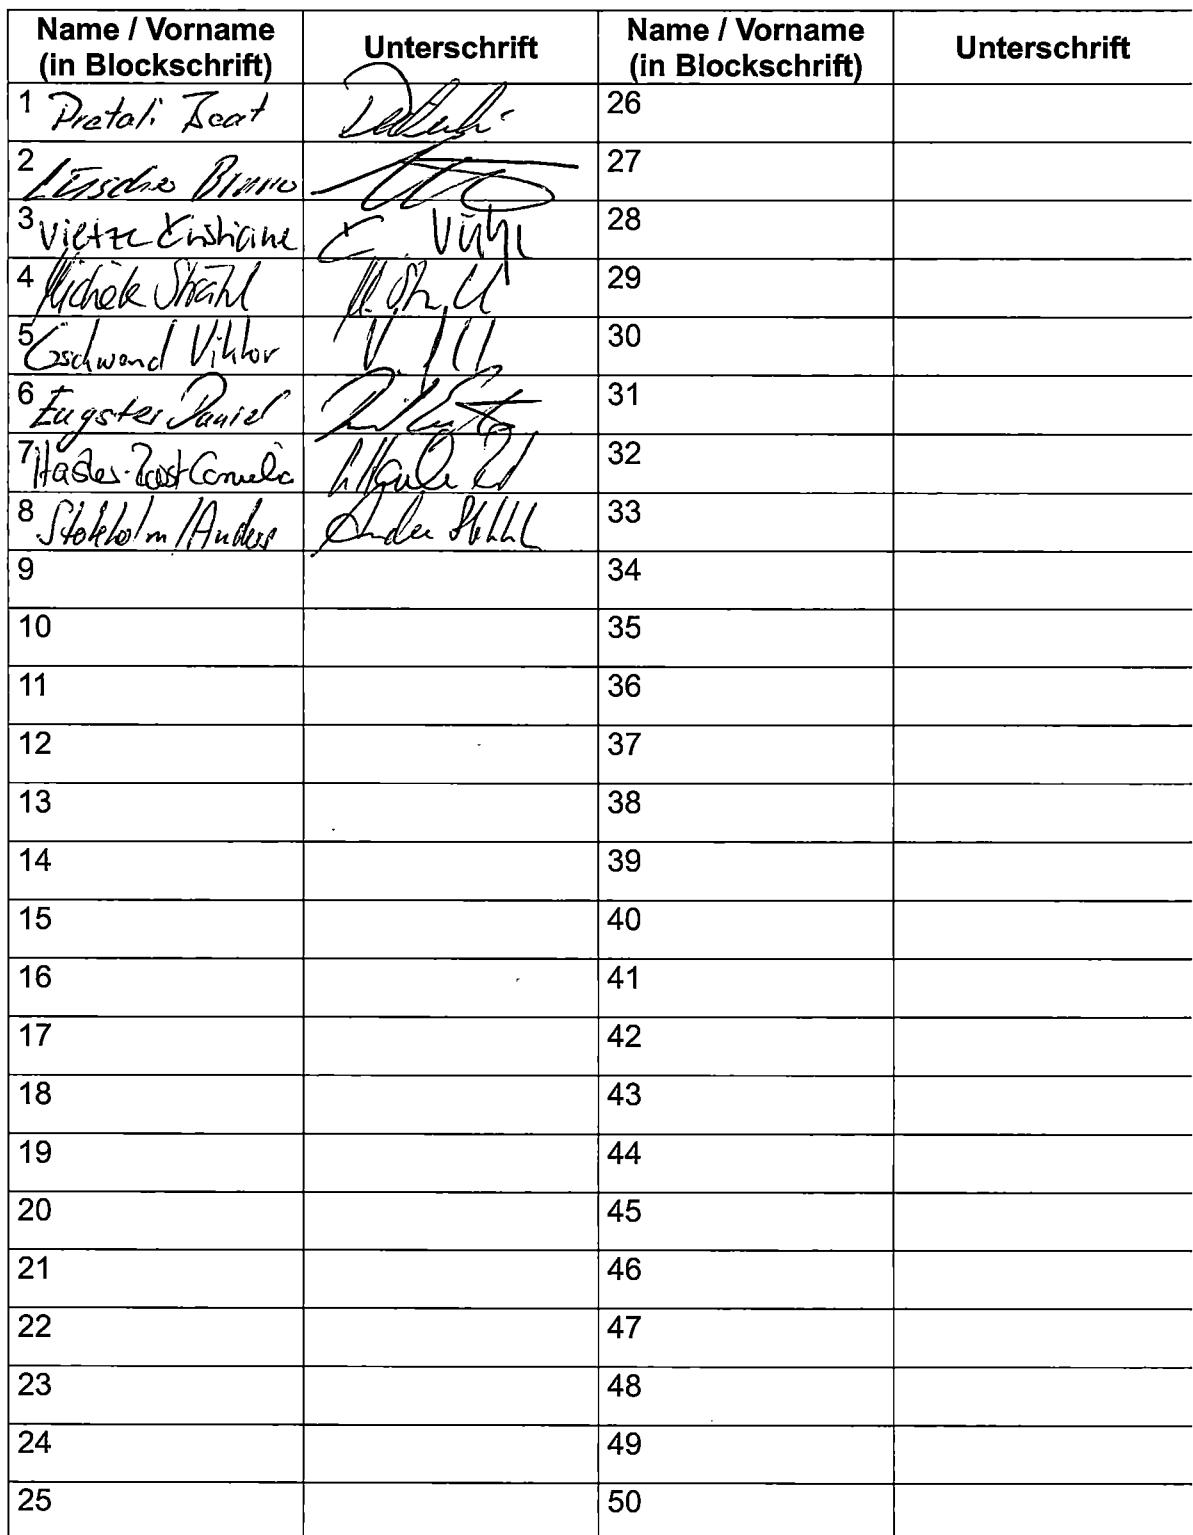 Name / Vorname (in Blockschrift) Unterschrift Name / Vorname (in Blockschrift) Unterschrift
1 Pretali Beat 26
2 Lüscher Bruno 27
3 Vietze Kristiane 28
4 Michèle Strähl 29
5 Gschwend Viktor 30
6 Eugster Daniel 31
7 Hasler-Roost Cornelia 32
8 Stokholm / Anders 33
9 34
10 35
11 36
12 37
13 38
14 39
15 40
16 41
17 42
18 43
19 44
20 45
21 46
22 47
23 48
24 49
25 50